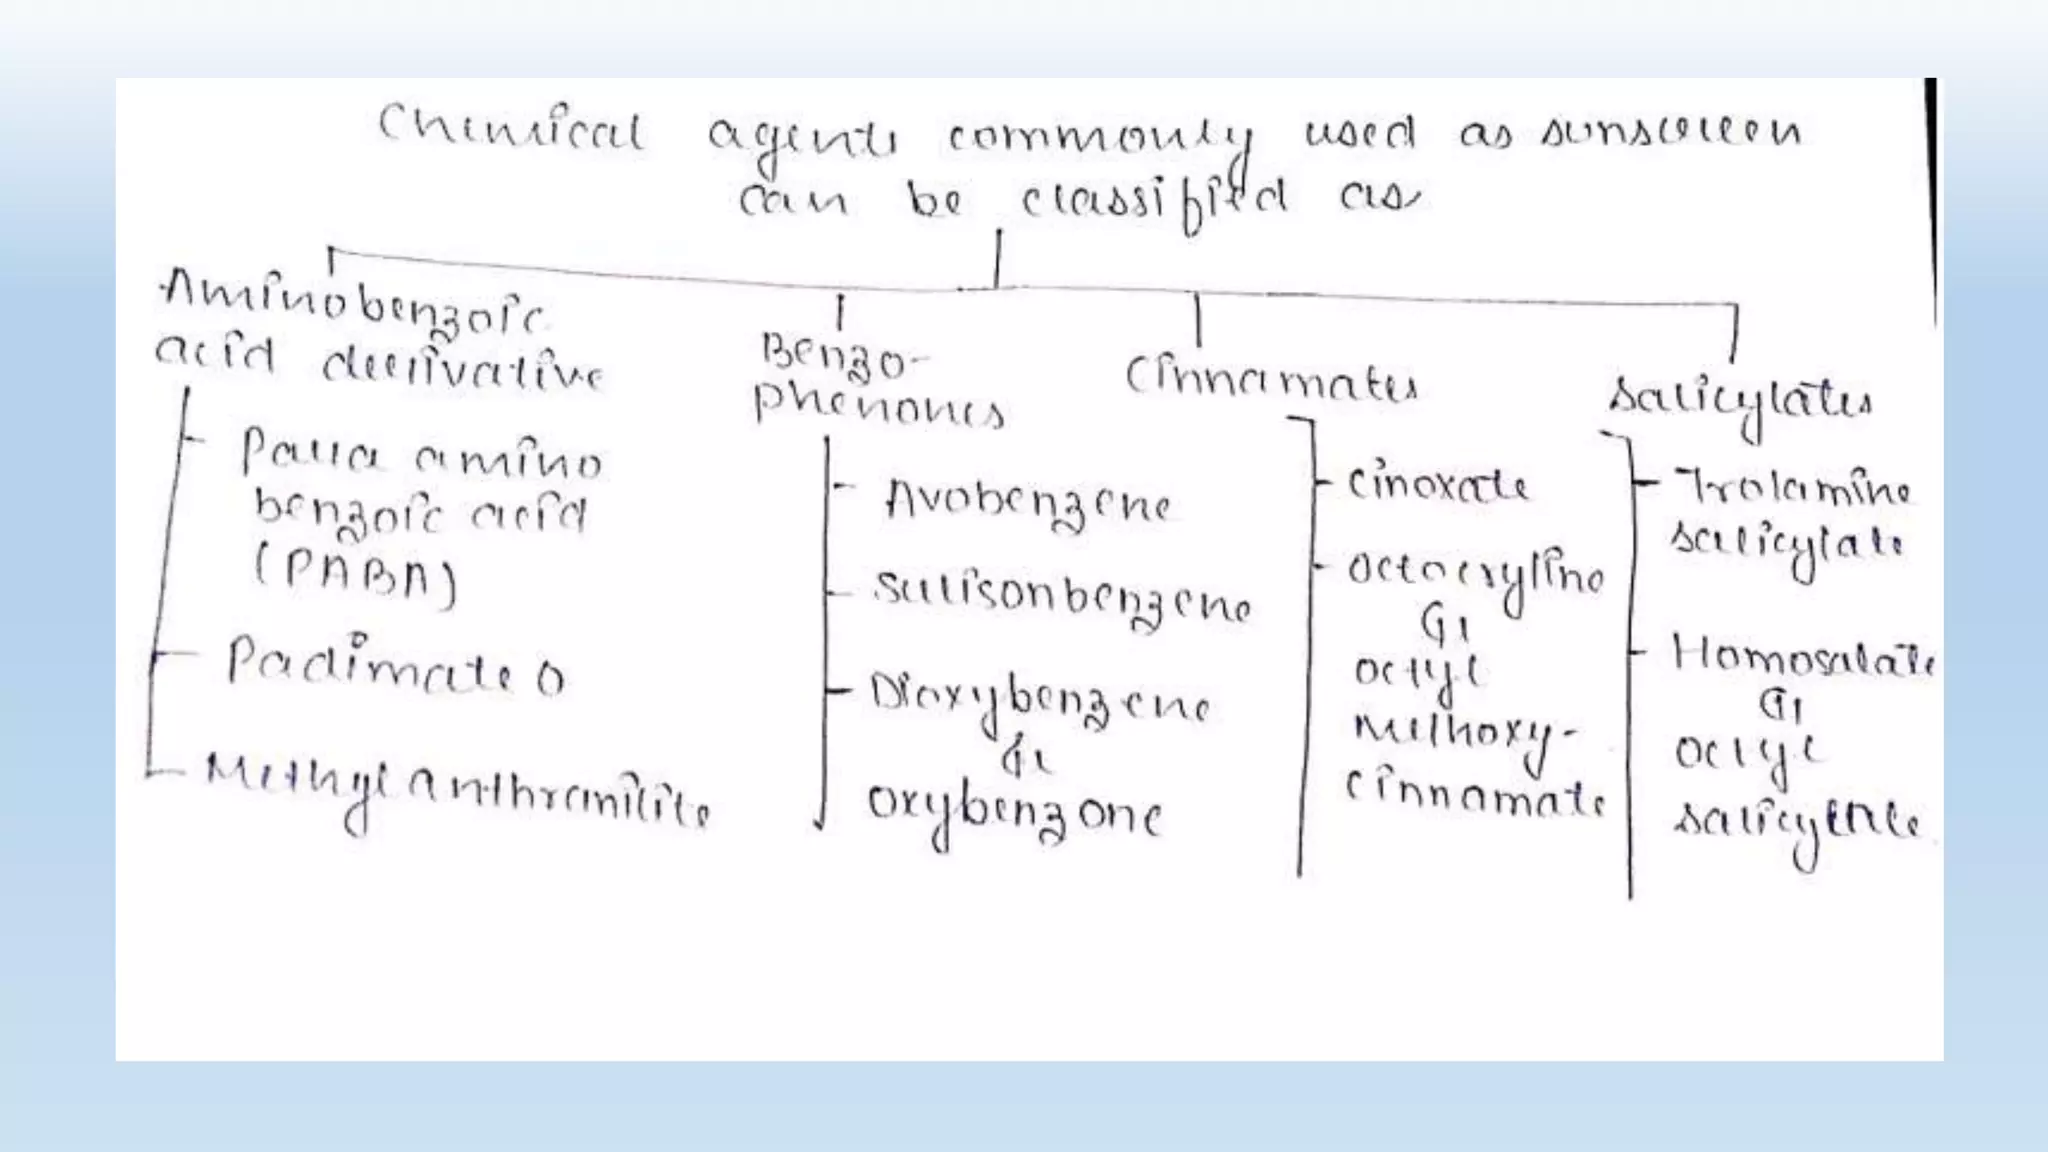 Chemical agents commonly used as sunscreen
can be classified as
Aminobenzoic
acid derivative
Para amino
benzoic acid
(PABA)
Padimate O
Methyl anthranilite
Benzo-
phenones
Avobenzene
Sulisonbenzene
Dioxybenzene
&
oxybenzone
Cinnamates
Cinoxate
Octocryline
&
octyl
Methoxy-
cinnamate
Salicylates
Trolamine
salicylate
Homosalate
&
octyl
salicylate